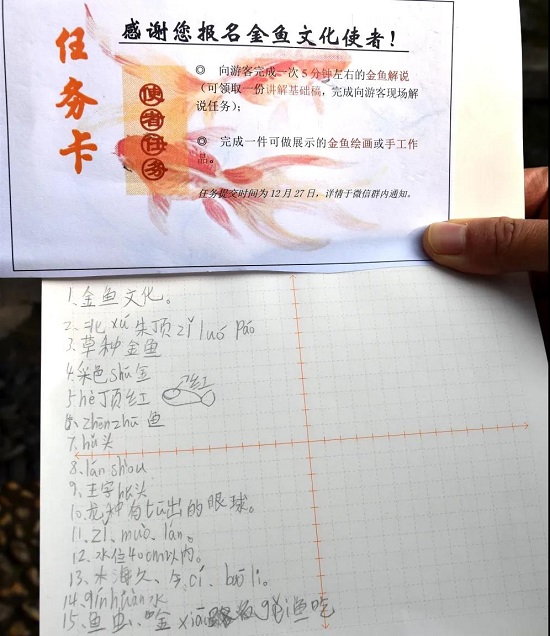 感谢您报名金鱼文化使者！
任务卡
使者任务
◎ 向游客完成一次5分钟左右的金鱼解说
（可领取一份讲解基础稿，完成向游客现场解
说任务）；
◎ 完成一件可做展示的金鱼绘画或手工作
品。
任务提交时间为12月27日，详情于微信群内通知。
1、金鱼文化。
2、北xú朱顶zǐ luó páo
3、草种金鱼
4、采色shū金
5、hè顶红 红
6、zhēnzhū鱼
7、hǔ头
8、lán shòu
9、王字hǔ头
10、龙种有tū出的眼球。
11、zǐ、muò、lán。
12、水位40cm以内。
13、木海久、今cí、bō li。
14、qínhuàn水
15、鱼虫、金xiā 鱼吃